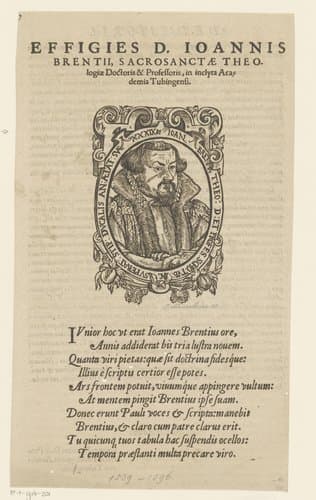 EFFIGIES D. IOANNIS
BRENTII, SACROSANCTÆ THEO-
logiæ Doctoris & Professoris, in inclyta Aca-
demia Tubingensi.
IVnior hoc vt erat Ioannes Brentius ore,
Annis addiderat bis tria lustra nouem.
Quanta viri pietas: quæ sit doctrina fidesque:
Illius è scriptis certior esse potes.
Ars frontem potuit, viuumque appingere vultum:
At mentem pingit Brentius ipse suam.
Donec erunt Pauli voces & scripta: manebit
Brentius, & claro cum patre clarus erit.
Tu quicunque tuos tabula hac suspendis ocellos:
Tempora præstanti multa precare viro.
1539 - 1596